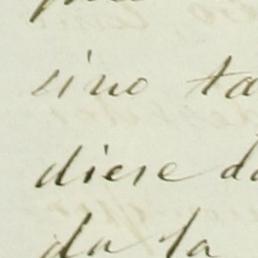 sino ta
diese da
da la